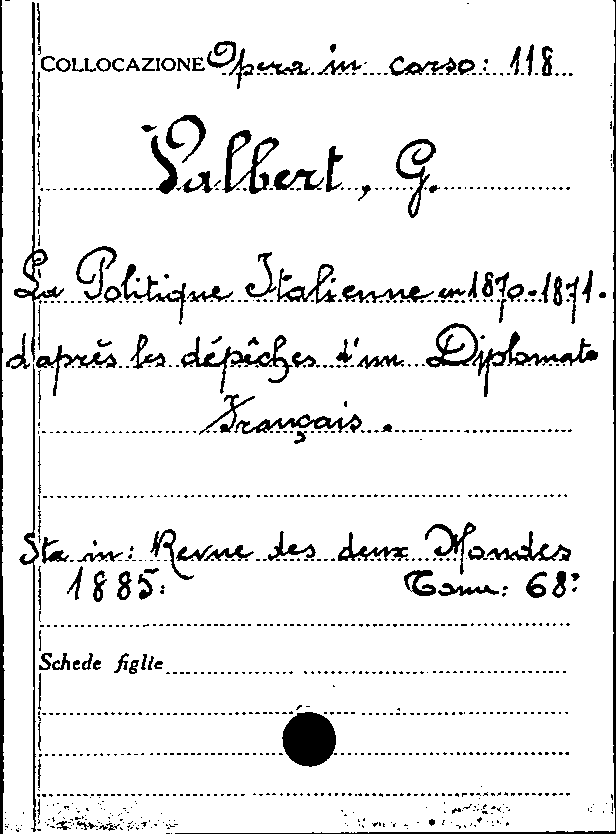 COLLOCAZIONE Opera in corso: 118
Valbert, G.
La Politique Italienne en 1870-1871.
d'après les dépêches d'un Diplomate
Français.
Sta in: Revue des deux Mondes
1885: Tome: 68:
Schede figlie